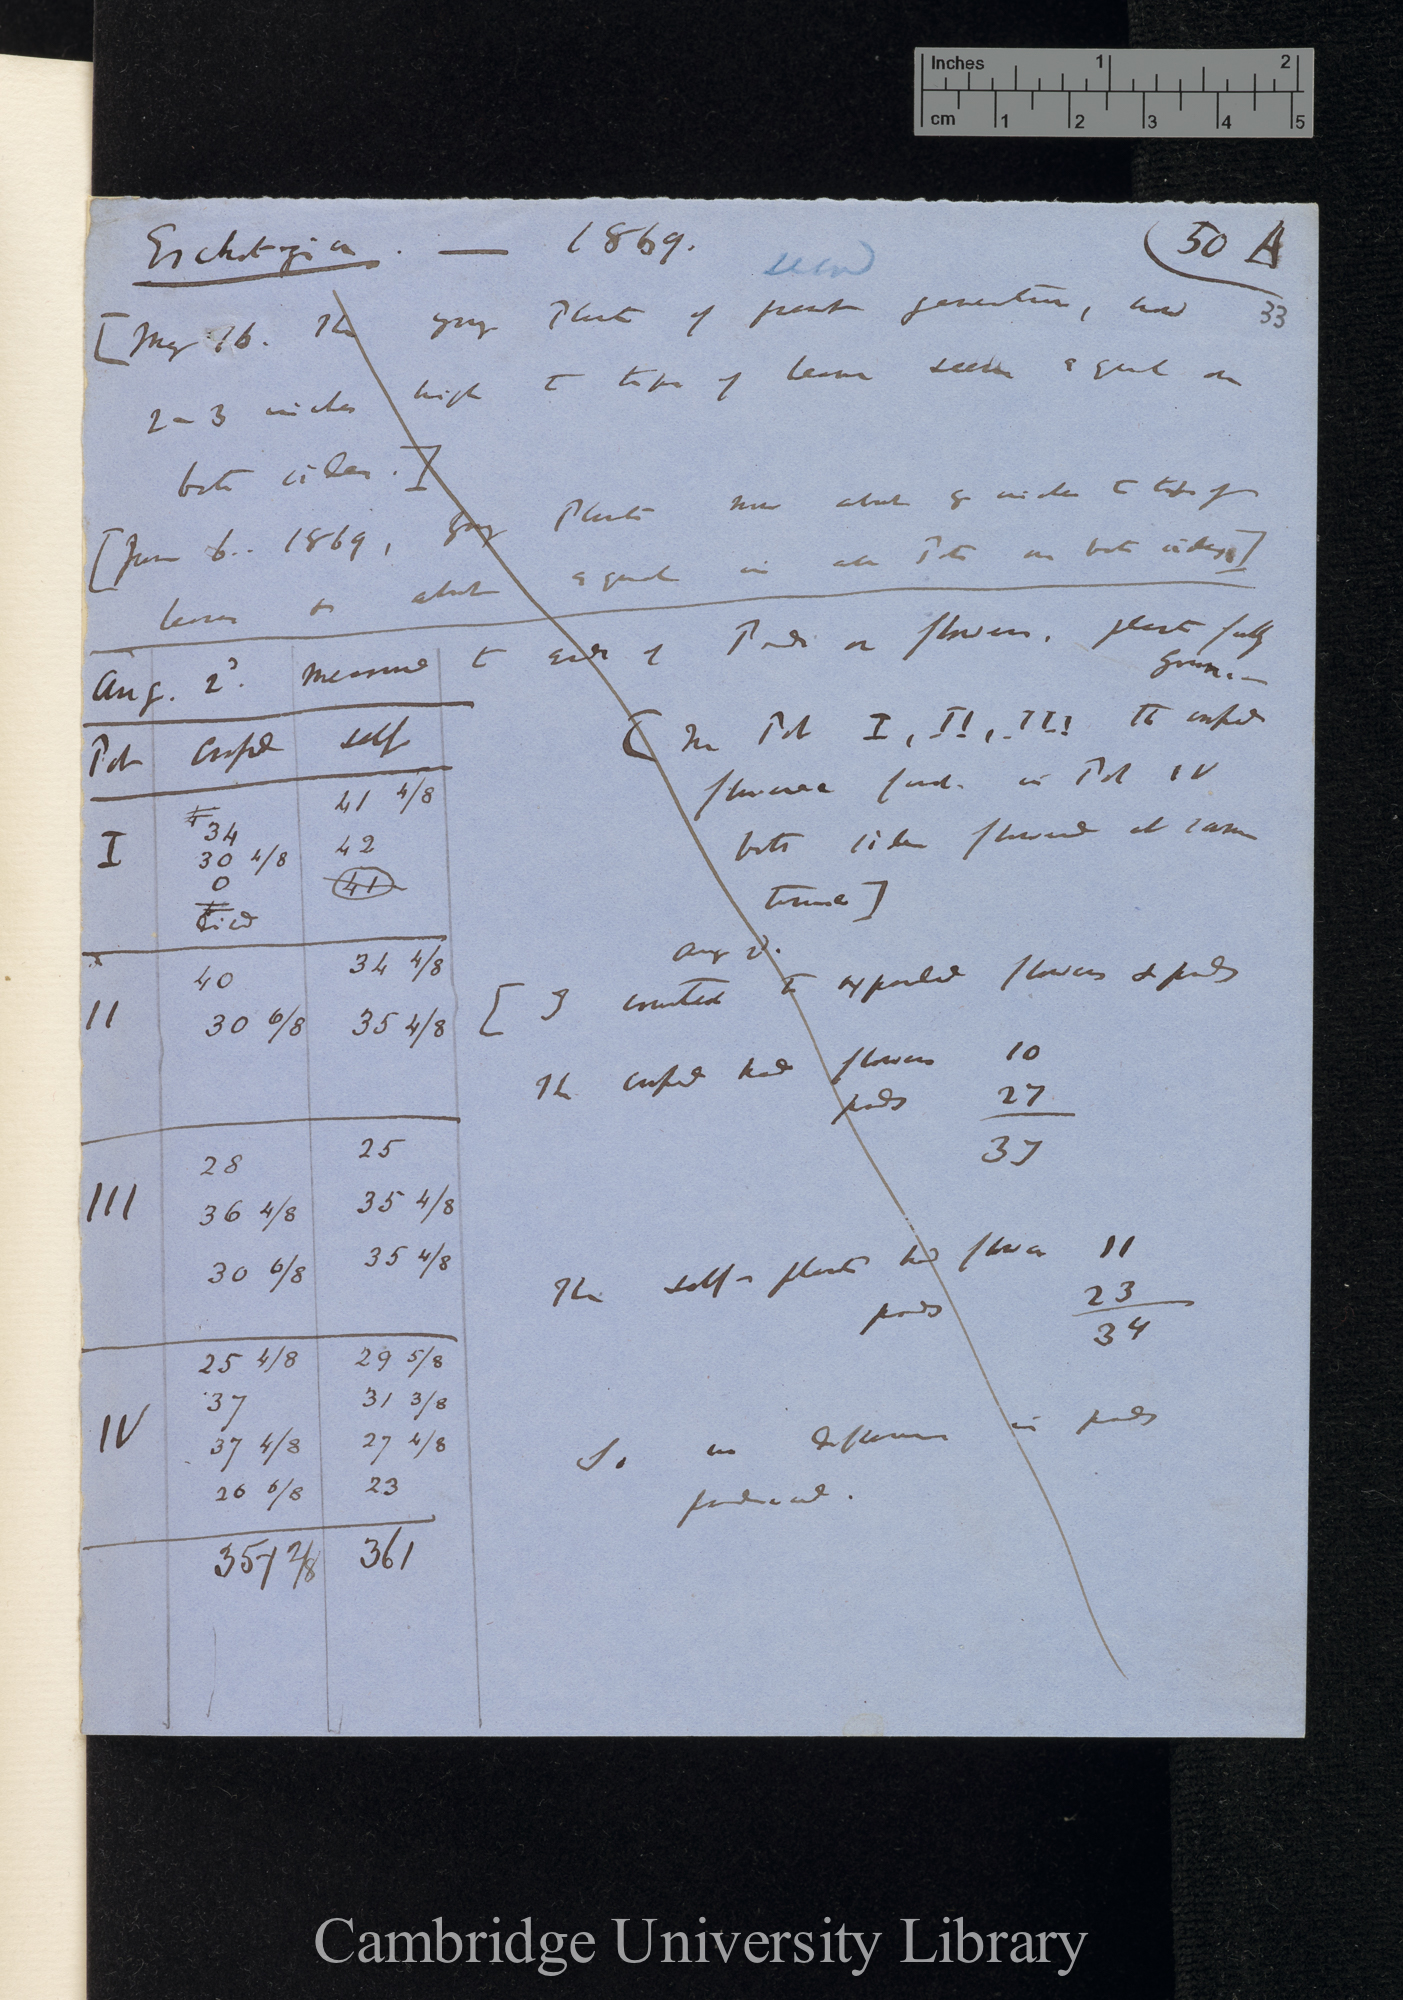 Inches 1 2
cm 1 2 3 4 5
Eschscholzia . — 1869.
50 A
second
33
[May 16. The young Plants of present generation, now
2 - 3 inches high to tips of leaves seem equal on
both sides.]
[June 6.. 1869, young Plants now about 9 inches to tips of
leaves & about equal in all Pots on both sides]
Aug. 2d. Measured to ends of Pods or flowers, plants fully
grown. —
Pot Crossed Self
[In Pot I, II, III the crossed
flowered first. in Pot IV
both sides flowered at same
time]
I
34 41 4/8
30 4/8 42
0 41
died
Aug 2d.
[I counted the expanded flowers & pods
II
40 34 4/8
30 6/8 35 4/8
The crossed had flowers 10
pods 27
37
III
28 25
36 4/8 35 4/8
30 6/8 35 4/8
The self-plants had flowers 11
pods 23
34
IV
25 4/8 29 5/8
37 31 3/8
37 4/8 27 4/8
26 6/8 23
So no difference in pods
produced.
357 2/8 361
Cambridge University Library